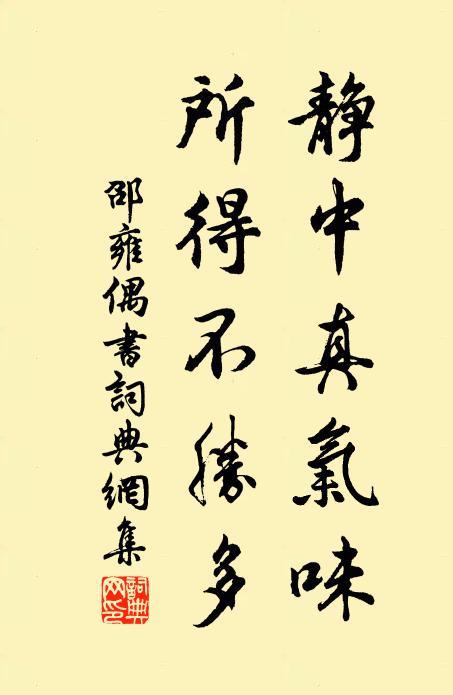 靜中真氣味
所得不勝多
邵雍偶書詞典網集
詞典網印